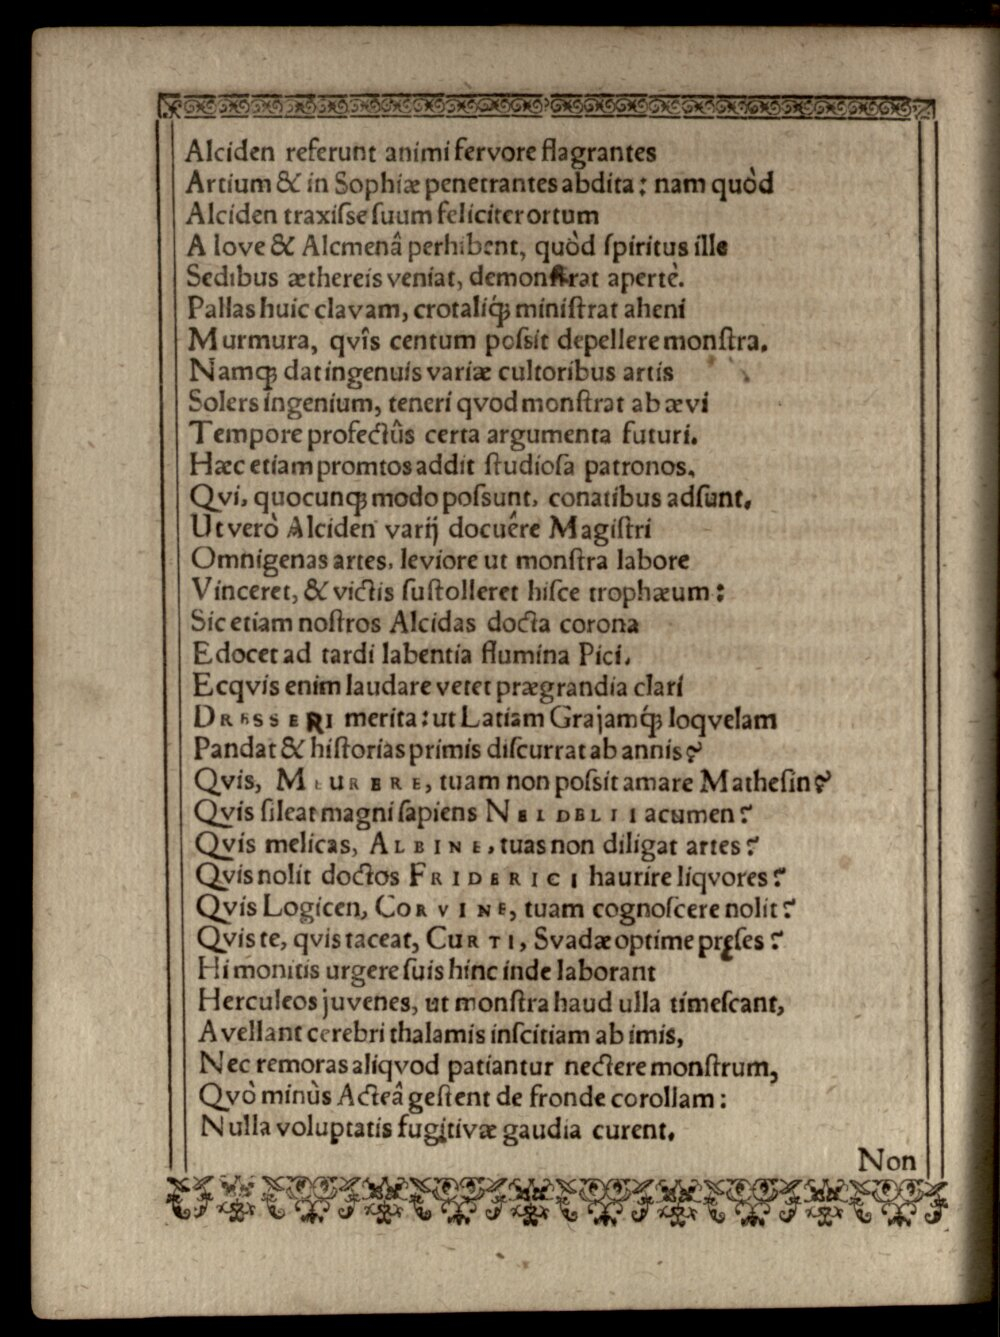 Alciden referunt animi fervore flagrantes
Artium & in Sophiæ penetrantes abdita: nam quòd
Alciden traxiſse ſuum feliciter ortum
A Iove & Alcmenâ perhibent, quòd ſpiritus ille
Sedibus æthereis veniat, demonſtrat apertè.
Pallas huic clavam, crotaliq́ꝫ miniſtrat aheni
Murmura, qvîs centum poſsit depellere monſtra.
Namqꝫ dat ingenuis variæ cultoribus artis
Solers ingenium, teneri qvod monſtrat ab ævi
Tempore profectûs certa argumenta futuri.
Hæc etiam promtos addit ſtudioſa patronos,
Qvi, quocunqꝫ modo poſsunt, conatibus adſunt.
Ut verò Alciden varij docuêre Magiſtri
Omnigenas artes, leviore ut monſtra labore
Vinceret, & victis ſuſtolleret hiſce trophæum:
Sic etiam noſtros Alcidas docta corona
Edocet ad tardi labentia flumina Pici.
Ecqvis enim laudare vetet prægrandia clari
DRESSERI merita: ut Latiam Grajamq́ꝫ loqvelam
Pandat & hiſtorias primis diſcurrat ab annis?
Qvis, MEURERE, tuam non poſsit amare Matheſin?
Qvis ſileat magni ſapiens NEIDELII acumen?
Qvis melicas, ALBINE, tuas non diligat artes?
Qvis nolit doctos FRIDERICI haurire liqvores?
Qvis Logicen, CORVINE, tuam cognoſcere nolit?
Qvis te, qvis taceat, CURTI, Svadæ optime pręſes?
Hi monitis urgere ſuis hinc inde laborant
Herculeos juvenes, ut monſtra haud ulla timeſcant,
Avellant cerebri thalamis inſcitiam ab imis,
Nec remoras aliqvod patiantur nectere monſtrum,
Qvò minùs Acteâ geſtent de fronde corollam:
Nulla voluptatis fugitivæ gaudia curent.
Non